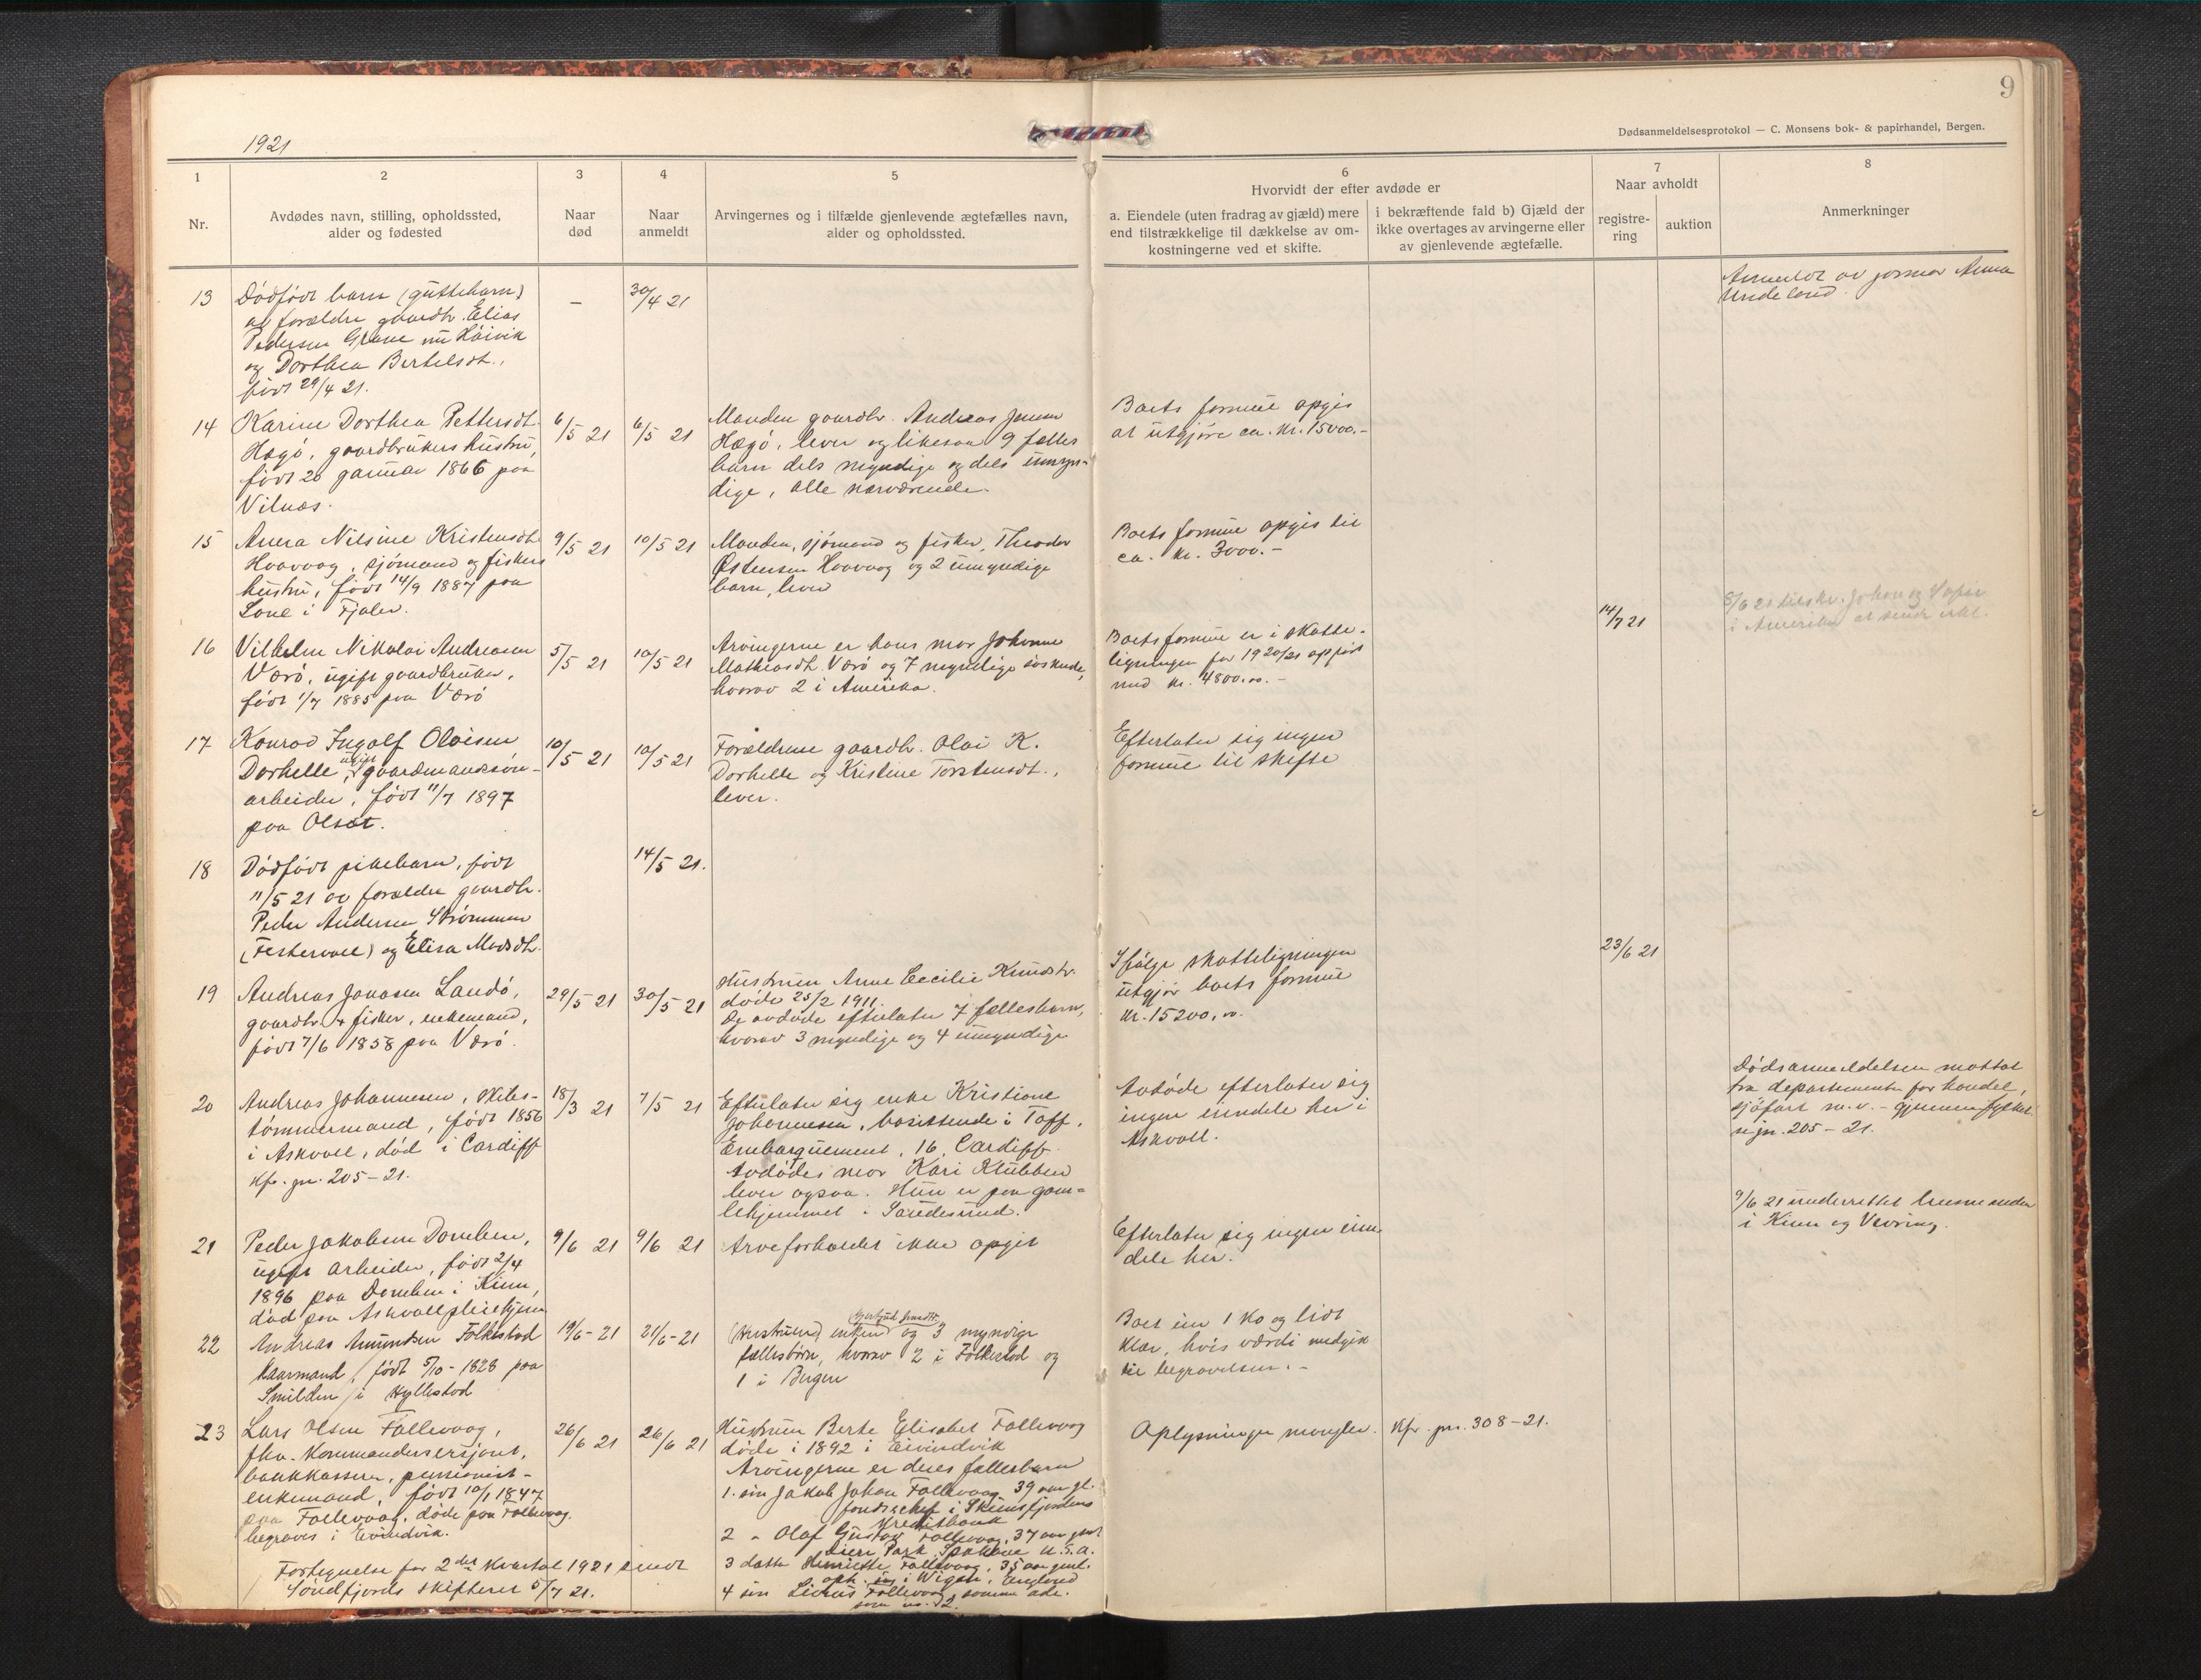 9
Dødsanmeldelsesprotokol — C. Monsens bok- & papirhandel, Bergen.
1921
1
Nr.
2
Avdødes navn, stilling, opholdssted,
alder og fødested
3
Naar
død
4
Naar
anmeldt
5
Arvingernes og i tilfælde gjenlevende ægtefælles navn,
alder og opholdssted.
6
Hvorvidt der efter avdøde er
a. Eiendele (uten fradrag av gjæld) mere
end tilstrækkelige til dækkelse av om-
kostningerne ved et skifte.
i bekræftende fald b) Gjæld der
ikke overtages av arvingerne eller
av gjenlevende ægtefælle.
7
Naar avholdt
registre-
ring
auktion
8
Anmerkninger
13
Dödfödt barn (guttebarn)
av forældre gaardbr. Elias
Pedersen Grane nu Höivik
og Dorthea Bertelsdt.,
född 29/4 21.
—
30/4 21
Anmeldt av jormor Anna
Undeland.
14
Karine Dorthea Pettersdt.
Hægö, gaardbrukers hustru,
född 26 januar 1866 paa
Vilnæs.
6/5 21
6/5 21
Manden gaardbr. Andreas Jensen
Hægö, lever og likesaa 9 fælles
barn dels myndige og dels umyn-
dige, alle nærværende.
Boets formue opgis
at utgjöre ca. kr. 15000.-
15
Anna Nilsine Kristensdt.
Haavaag, sjömand og fiskers
hustru, född 14/9 1887 paa
Lone i Fjaler.
9/5 21
10/5 21
Manden, sjömand og fisker, Theodor
Östensen Haavaag og 2 umyndige
barn, lever
Boets formue opgis til
ca. kr. 3000.-
16
Vilhelm Nikolai Andreasen
Værö, ugift gaardbruker,
född 1/7 1885 paa Værö
5/5 21
10/5 21
Arvingerne er hans mor Johanne
Mathiasdt. Værö og 7 myndige söskende,
hvorav 2 i Amerika.
Boets formue er i skatte-
ligningen for 1920/21 opfört
med kr. 4800.00.-
14/7 21
8/6 21 tilskr. Johan og
i Amerika at sende erkl.
17
Konrad Ingolf Olaisen
Dorhelle, ugift gaardmandssön-
arbeider, född 11/7 1897
paa Olset.
10/5 21
10/5 21
Forældrene gaardbr. Olai K.
Dorhelle og Kristine Torstensdt.,
lever.
Efterlater sig ingen
formue til skifte
18
Dödfödt pikebarn, född
11/5 21 av forældre gaardbr.
Peder Andersen Strömmen
(Festervoll) og Elisa Madsdt.
14/5 21.
19
Andreas Jonasen Landö,
gaardbr. & fisker, enkemand,
född 7/6 1858 paa Værö.
29/5 21
30/5 21
Hustruen Anne Cecilie Knudsdt.
döde 25/2 1911.
De avdöde efterlater 7 fællesbarn,
hvorav 3 myndige og 4 umyndige
Ifölge skatteligningen
utgjör boets formue
kr. 15200,00.
23/6 21
20
Andreas Johannesen, skibs-
tömmermand, född 1856
i Askvoll, död i Cardiff
Kfr. jnr. 205-21.
18/3 21
7/5 21
Efterlater sig enke Kristiane
Johannesen, bosittende i Taff,
Embarquement, 16, Cardiff.
Avdödes mor Kari Klubben
lever ogsaa. Hun er paa gam-
lehjemmet i
Avdöde efterlater sig
ingen eiendele her i
Askvoll.
Dödsanmeldelsen mottat
fra departementet for handel,
sjöfart m.v. - gjennem fylket
se jnr. 205-21.
21
Peder Jakobsen Domben,
ugift arbeider, född 2/4
1896 paa Domben i Kinn,
död paa Askvoll pleiehjem
9/6 21
9/6 21
Arveforholdet ikke opgit
Efterlater sig ingen eien-
dele her.
9/6 21 underrettet lensmanden
i Kinn og Vevring.
22
Andreas Amundsen Folkestad
kaarmand, född 5/10-1828 paa
Smilden i Hyllestad
19/6-21
21/6-21
(Hustruen) enken og 3 myndige
fællesbörn, hvorav 2 i Folkestad og
1 i Bergen
Boet eier 1 ko og lidt
klær, hvis værdi medgik
til begravelsen.-
23
Lars Olsen Follevaag,
fhv. Kommandersersjant,
bankkasserer, pensionist-
enkemand, född 10/1 1847
paa Follevaag, döde paa Follevaag.
begraves i Eivindvik.
26/6 21
26/6 21
Hustruen Berte Elisabet Follevaag
döde i 1892 i Eivindvik
Arvingerne er deres fællesbarn
1. sön Jakob Johan Follevaag 39 aar gl.
fondschef i Skiensfjordens
Kreditbank
2 - Olaf Gustav Follevaag, 37 aar gml
Deer Park, Spokane U.S.A.
3 datter Henriette Follevaag, 35 aar gml.
oph. sig i Wigan, England
4 sön Sivert Follevaag, samme adr.
som nr. 2.
Oplysninger mangler.
Kfr. jnr. 308-21.
Fortegnelse for 2det kvartal 1921 sendt
Söndfjords skifteret 5/7 21.